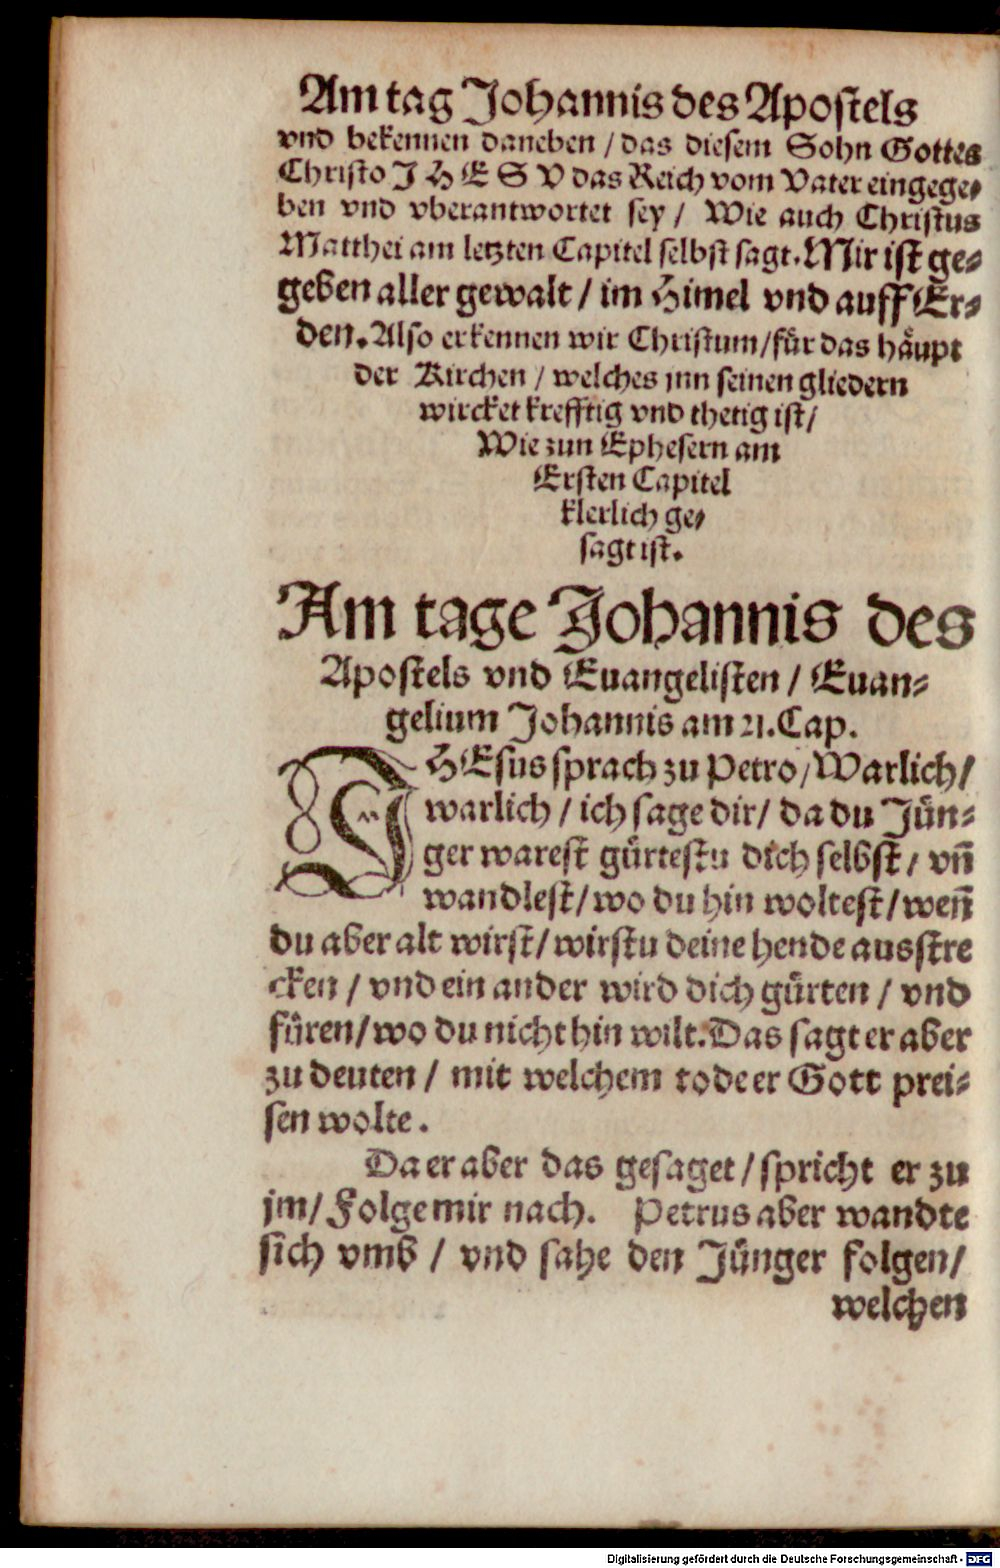 Am tag Johannis des Apostels
vnd bekennen daneben / das diesem Sohn Gottes
Christo J H E S V das Reich vom Vater eingege⸗
ben vnd vberantwortet sey / Wie auch Christus
Matthei am letzten Capitel selbst sagt. Mir ist ge⸗
geben aller gewalt / im Himel vnd auff Er⸗
den. Also erkennen wir Christum / fůr das håupt
der Kirchen / welches jnn seinen gliedern
wircket krefftig vnd thetig ist /
Wie zun Ephesern am
Ersten Capitel
klerlich ge⸗
sagt ist.
Am tage Johannis des
Apostels vnd Euangelisten / Euan⸗
gelium Johannis am 21. Cap.
JHEsus sprach zu Petro / Warlich /
warlich / ich sage dir / da du Jůn⸗
ger warest gůrtestu dich selbst / vn̄
wandlest / wo du hin woltest / wen̄
du aber alt wirst / wirstu deine hende ausstre
cken / vnd ein ander wird dich gůrten / vnd
fůren / wo du nicht hin wilt. Das sagt er aber
zu deuten / mit welchem tode er Gott prei⸗
sen wolte.
Da er aber das gesaget / spricht er zu
jm / Folge mir nach. Petrus aber wandte
sich vmb / vnd sahe den Jůnger folgen /
welchen
Digitalisierung gefördert durch die Deutsche Forschungsgemeinschaft - DFG